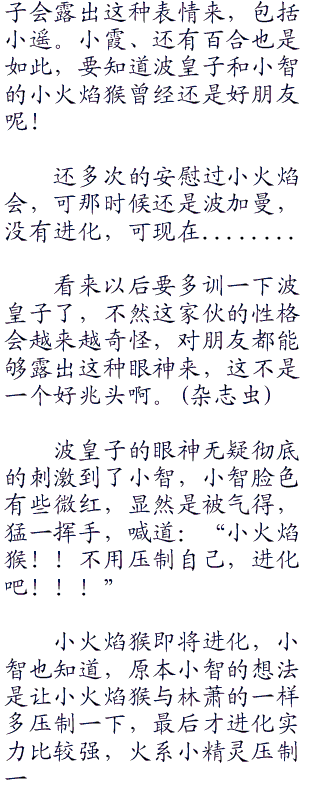 子会露出这种表情来，包括
小遥。小霞、还有百合也是
如此，要知道波皇子和小智
的小火焰猴曾经还是好朋友
呢！
还多次的安慰过小火焰
会，可那时候还是波加曼，
没有进化，可现在........
看来以后要多训一下波
皇子了，不然这家伙的性格
会越来越奇怪，对朋友都能
够露出这种眼神来，这不是
一个好兆头啊。(杂志虫)
波皇子的眼神无疑彻底
的刺激到了小智，小智脸色
有些微红，显然是被气得，
猛一挥手，喊道：“小火焰
猴！！不用压制自己，进化
吧！！！”
小火焰猴即将进化，小
智也知道，原本小智的想法
是让小火焰猴与林萧的一样
多压制一下，最后才进化实
力比较强，火系小精灵压制
一